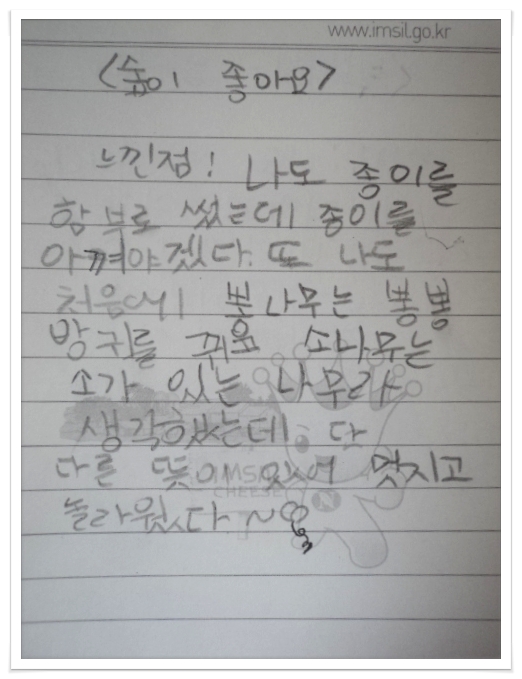 www.imsil.go.kr
<숲이 좋아요>
느낀점! 나도 종이를
함부로 썼는데 종이를
아껴야겠다. 또 나도
처음에 뽕나무는 뽕뽕
방귀를 뀌욮 소나무는
소가 있는 나무라
생각했는데 단
다른 뜻이 있어 멋지고
놀라웠다 ~
IMSIL
CHEESE
N